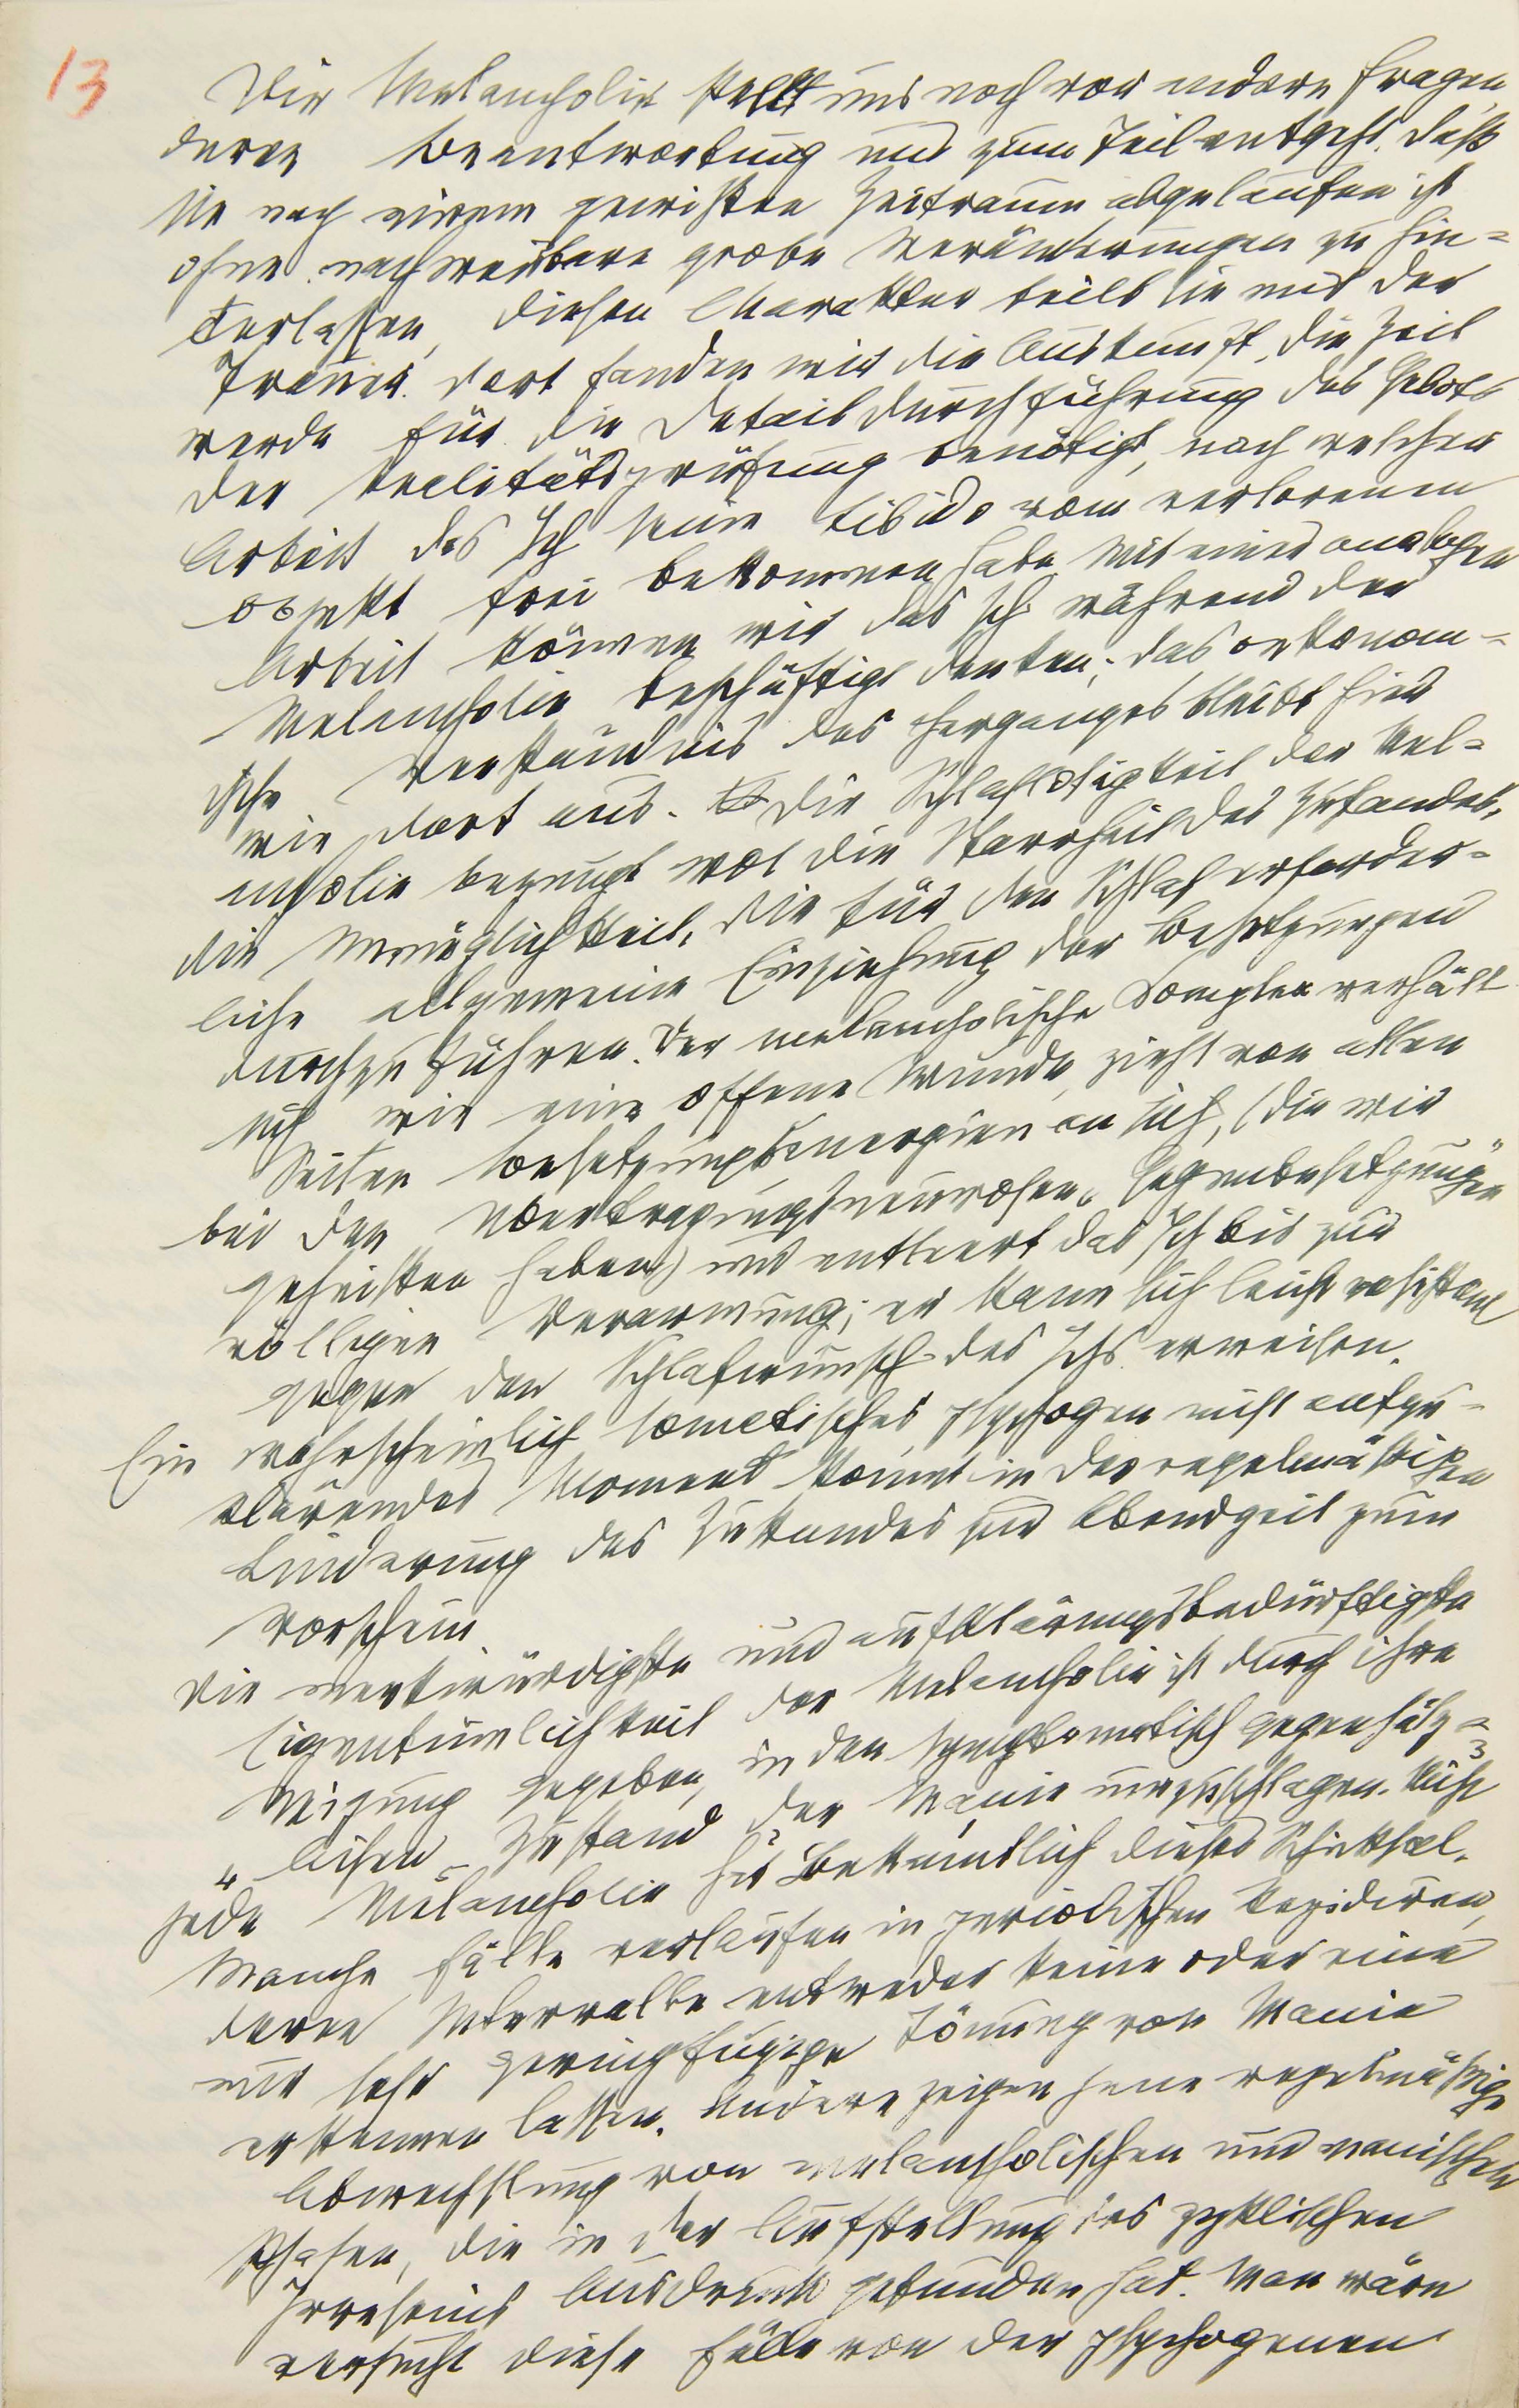 13
Die Melancholie stellt uns noch vor andere Fragen,
deren Beantwortung uns zum Teil entgeht. Daß
sie nach einem gewissen Zeitraum abgelaufen ist
ohne nachweisbare grobe Veränderungen zu hin=
terlassen, diesen Charakter teilt sie mit der
Trauer. Dort fanden wir die Auskunft, die Zeit
werde für die Detaildurchführung des Gebots
der Realitätsprüfung benötigt, nach welcher
Arbeit das Ich seine Libido vom verlorenen
Objekt frei bekommen habe. Mit einer analogen
Arbeit können wir das Ich während der
Melancholie beschäftigt denken; das oekonom=
ische Verständnis des Herganges bleibt hier
wie dort aus. Die Schlaflosigkeit der Mel=
ancholie bezeugt wol die Starrheit des Zustandes,
die Unmöglichkeit, die für den Schlaf erforder=
liche allgemeine Einziehung der Besetzungen
durchzuführen. Der melancholische Complex verhält
sich wie eine offene Wunde, zieht von allen
Seiten Besetzungsenergien an sich, (die wir
bei den Übertragungsneurosen „Gegenbesetzungen"
geheißen haben) und entleert das Ich bis zur
völligen Verarmung; er kann sich leicht resistent
gegen den Schlafwunsch des Ichs erweisen.
Ein wahrscheinlich somatisches, psychogen nicht aufzu=
klärendes Moment kommt in der regelmäßigen
Linderung des Zustandes zur Abendzeit zum
Vorschein.
Die merkwürdigste und aufklärungsbedürftigste
Eigentümlichkeit der Melancholie ist durch ihre
Neigung gegeben, in den symptomatisch gegensätz=
lichen Zustand der Manie umzuschlagen. Nicht
jede Melancholie hat bekanntlich dieses Schicksal.
Manche Fälle verlaufen in periodischen Rezidiven,
deren Intervalle entweder keine oder eine
nur sehr geringfügige Tönung von Manie
erkennen lassen. Andere zeigen jene regelmäßige
Abwechslung von melancholischen und manischen
Phasen, die in der Aufstellung des zyklischen
Irreseins Ausdruck gefunden hat. Man wäre
versucht diese Fälle von der psychogenen